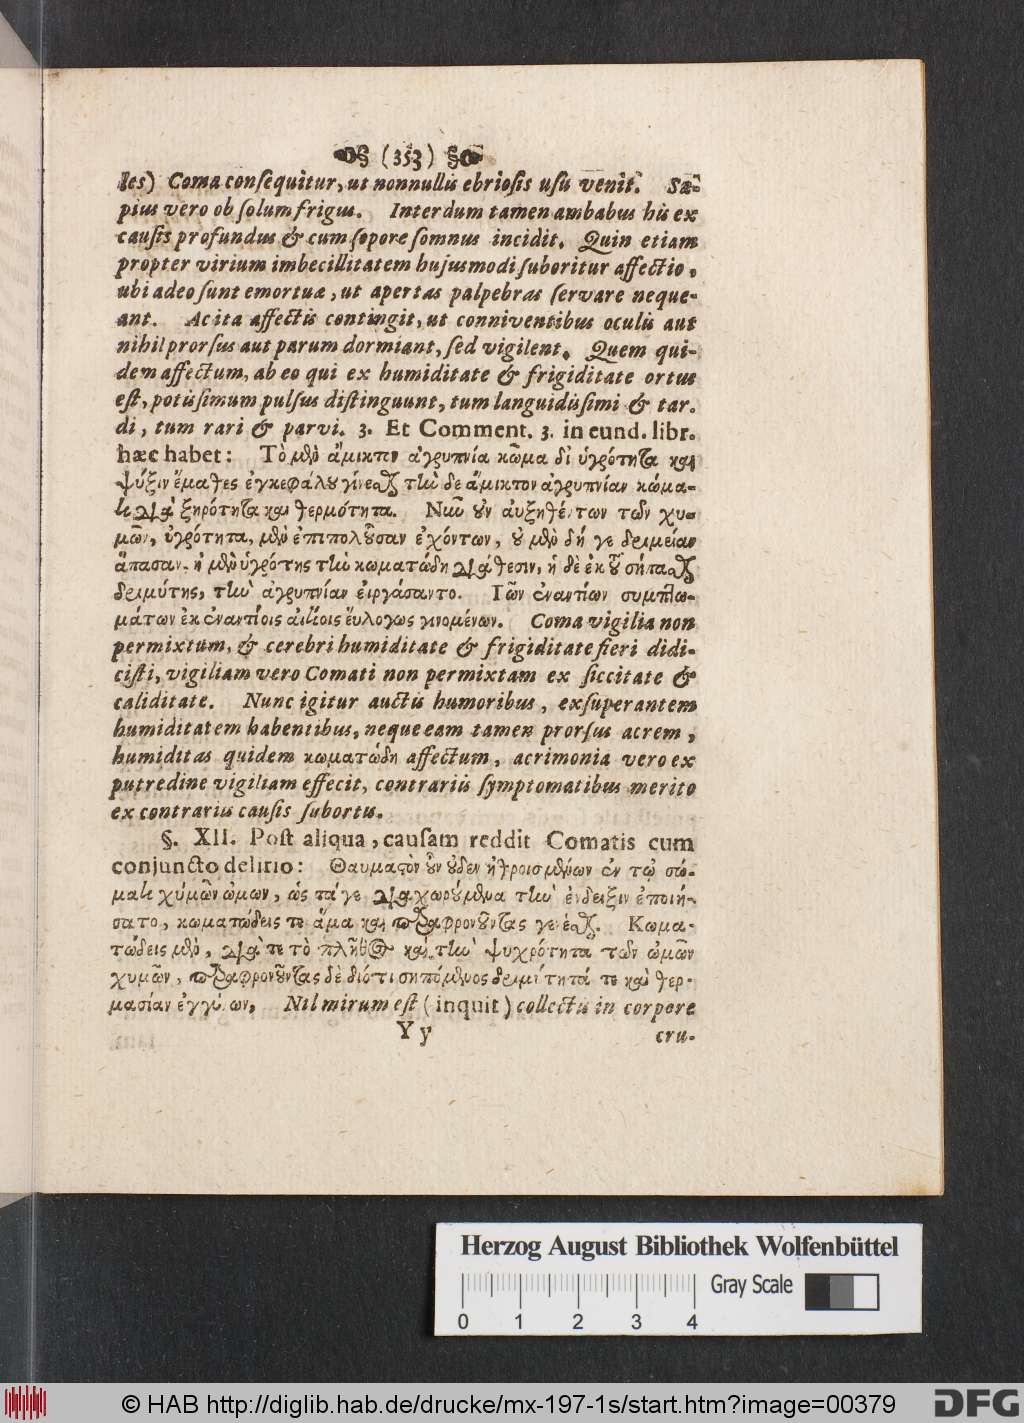 (353)
les) Coma consequitur, ut nonnullis ebriosis usu venit. Sæ-
pius vero ob solum frigus. Interdum tamen ambabus his ex
causis profundus & cum sopore somnus incidit. Quin etiam
propter virium imbecillitatem hujusmodi suboritur affectio,
ubi adeo sunt emortuæ, ut apertas palpebras servare neque-
ant. Ac ita affectis contingit, ut conniventibus oculis aut
nihil prorsus aut parum dormiant, sed vigilent. Quem qui-
dem affectum, ab eo qui ex humiditate & frigiditate ortus
est, potissimum pulsus distinguunt, tum languidissimi & tar-
di, tum rari & parvi. 3. Et Comment. 3. in eund. libr.
hæc habet: Τὸ μὲν ἄμικτον ἀγρυπνία κῶμα δι ὑγρότητα καὶ
ψύξιν ἔμαθες ἐγκεφάλου γίνεσθαι τὴν δε ἄμικτον ἀγρυπνίαν κώμα-
τι διὰ ξηρότητα καὶ θερμότητα. Νῦν οὖν ἀυξηθέντων τῶν χυ-
μῶν, ὑγρότητα, μὲν ἐπιπολοῦσαν ἐχόντων, οὐ μὲν δή γε δριμείαν
ἅπασαν, ἡ μὲν ὑγρότης τὴν κωματώδη διάθεσιν, ἡ δὲ ἐκ τοῦ σήπεσθαι
δριμύτης, τὴν ἀγρυπνίαν ἐιργάσαντο. Τῶν ἐναντίων συμπτω-
μάτων ἐκ ἐναντίοις αἰτίοις ἔυλογως γινομένων. Coma vigilia non
permixtum, & cerebri humiditate & frigiditate fieri didi-
cisti, vigiliam vero Comati non permixtam ex siccitate &
caliditate. Nunc igitur auctis humoribus, exsuperantem
humiditatem habentibus, neque eam tamen prorsus acrem,
humiditas quidem κωματώδη affectum, acrimonia vero ex
putredine vigiliam effecit, contrariis symptomatibus merito
ex contrariis causis subortis.
§. XII. Post aliqua, causam reddit Comatis cum
conjuncto delirio: Θαυμαστὸν οὖν οὐδεν ἠθροισμένων ἐν τῷ σώ-
ματι χύμῶν ὠμων, ὡς τά γε διαχωρούμενα τὴν ἔνδειξιν ἐποιή-
σατο, κωματώδεις τε ἅμα καὶ παραφρονοῦντας γενέσθαι. Κωμα-
τώδεις μὲν, διὰ τε τὸ πλῆθος καὶ τὴν ψυχρότητα τῶν ὠμῶν
χυμῶν, παραφρονοῦντας δὲ διότι σηπόμενος δριμύτητά τε καὶ θερ-
μασίαν ἐγγί ων, Nil mirum est (inquit) collectis in corpore
Yy
cru-
Herzog August Bibliothek Wolfenbüttel
Gray Scale
0 1 2 3 4
© HAB http://diglib.hab.de/drucke/mx-197-1s/start.htm?image=00379
DFG